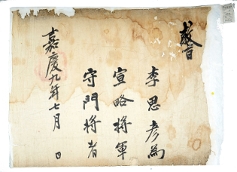 敎旨
李思彦為
宣略將軍
守門將者
嘉慶九年七月 日